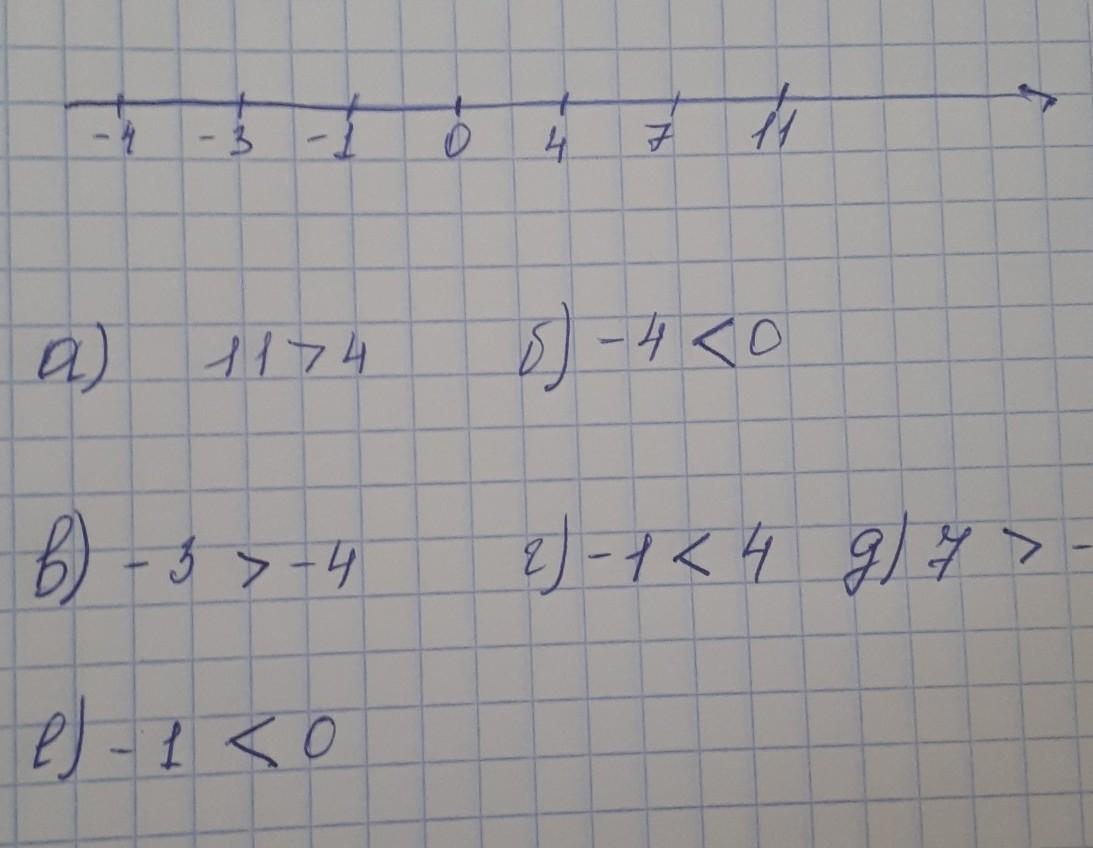 -4 -3 -1 0 4 7 11
а) 11 > 4 б) -4 < 0
в) -3 > -4 г) -1 < 4 д) 7 > -
е) -1 < 0